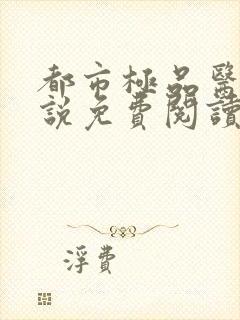 都市極品醫
說免費閱讀
浮費